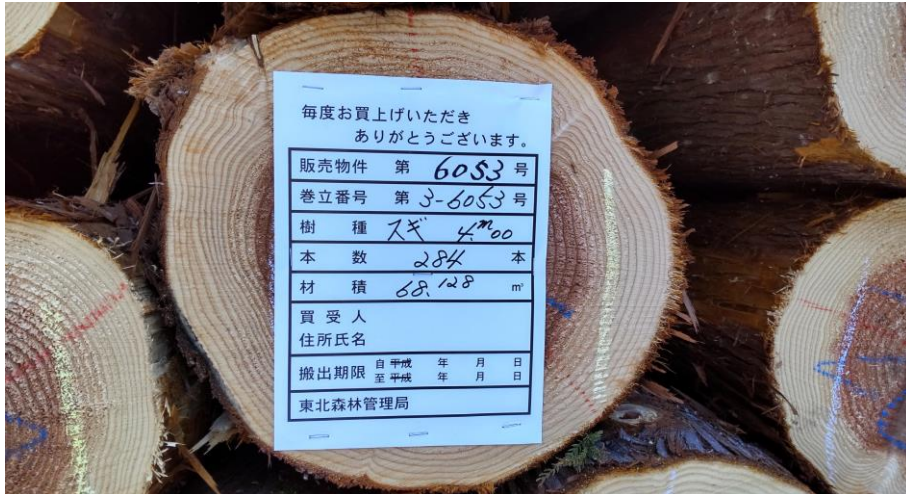 毎度お買上げいただき
ありがとうございます。
販売物件 第 6053 号
巻立番号 第 3-6053 号
樹 種 スギ 4.m00
本 数 284 本
材 積 68.128 m³
買受人
住所氏名
搬出期限 自 平成 年 月 日
至 平成 年 月 日
東北森林管理局